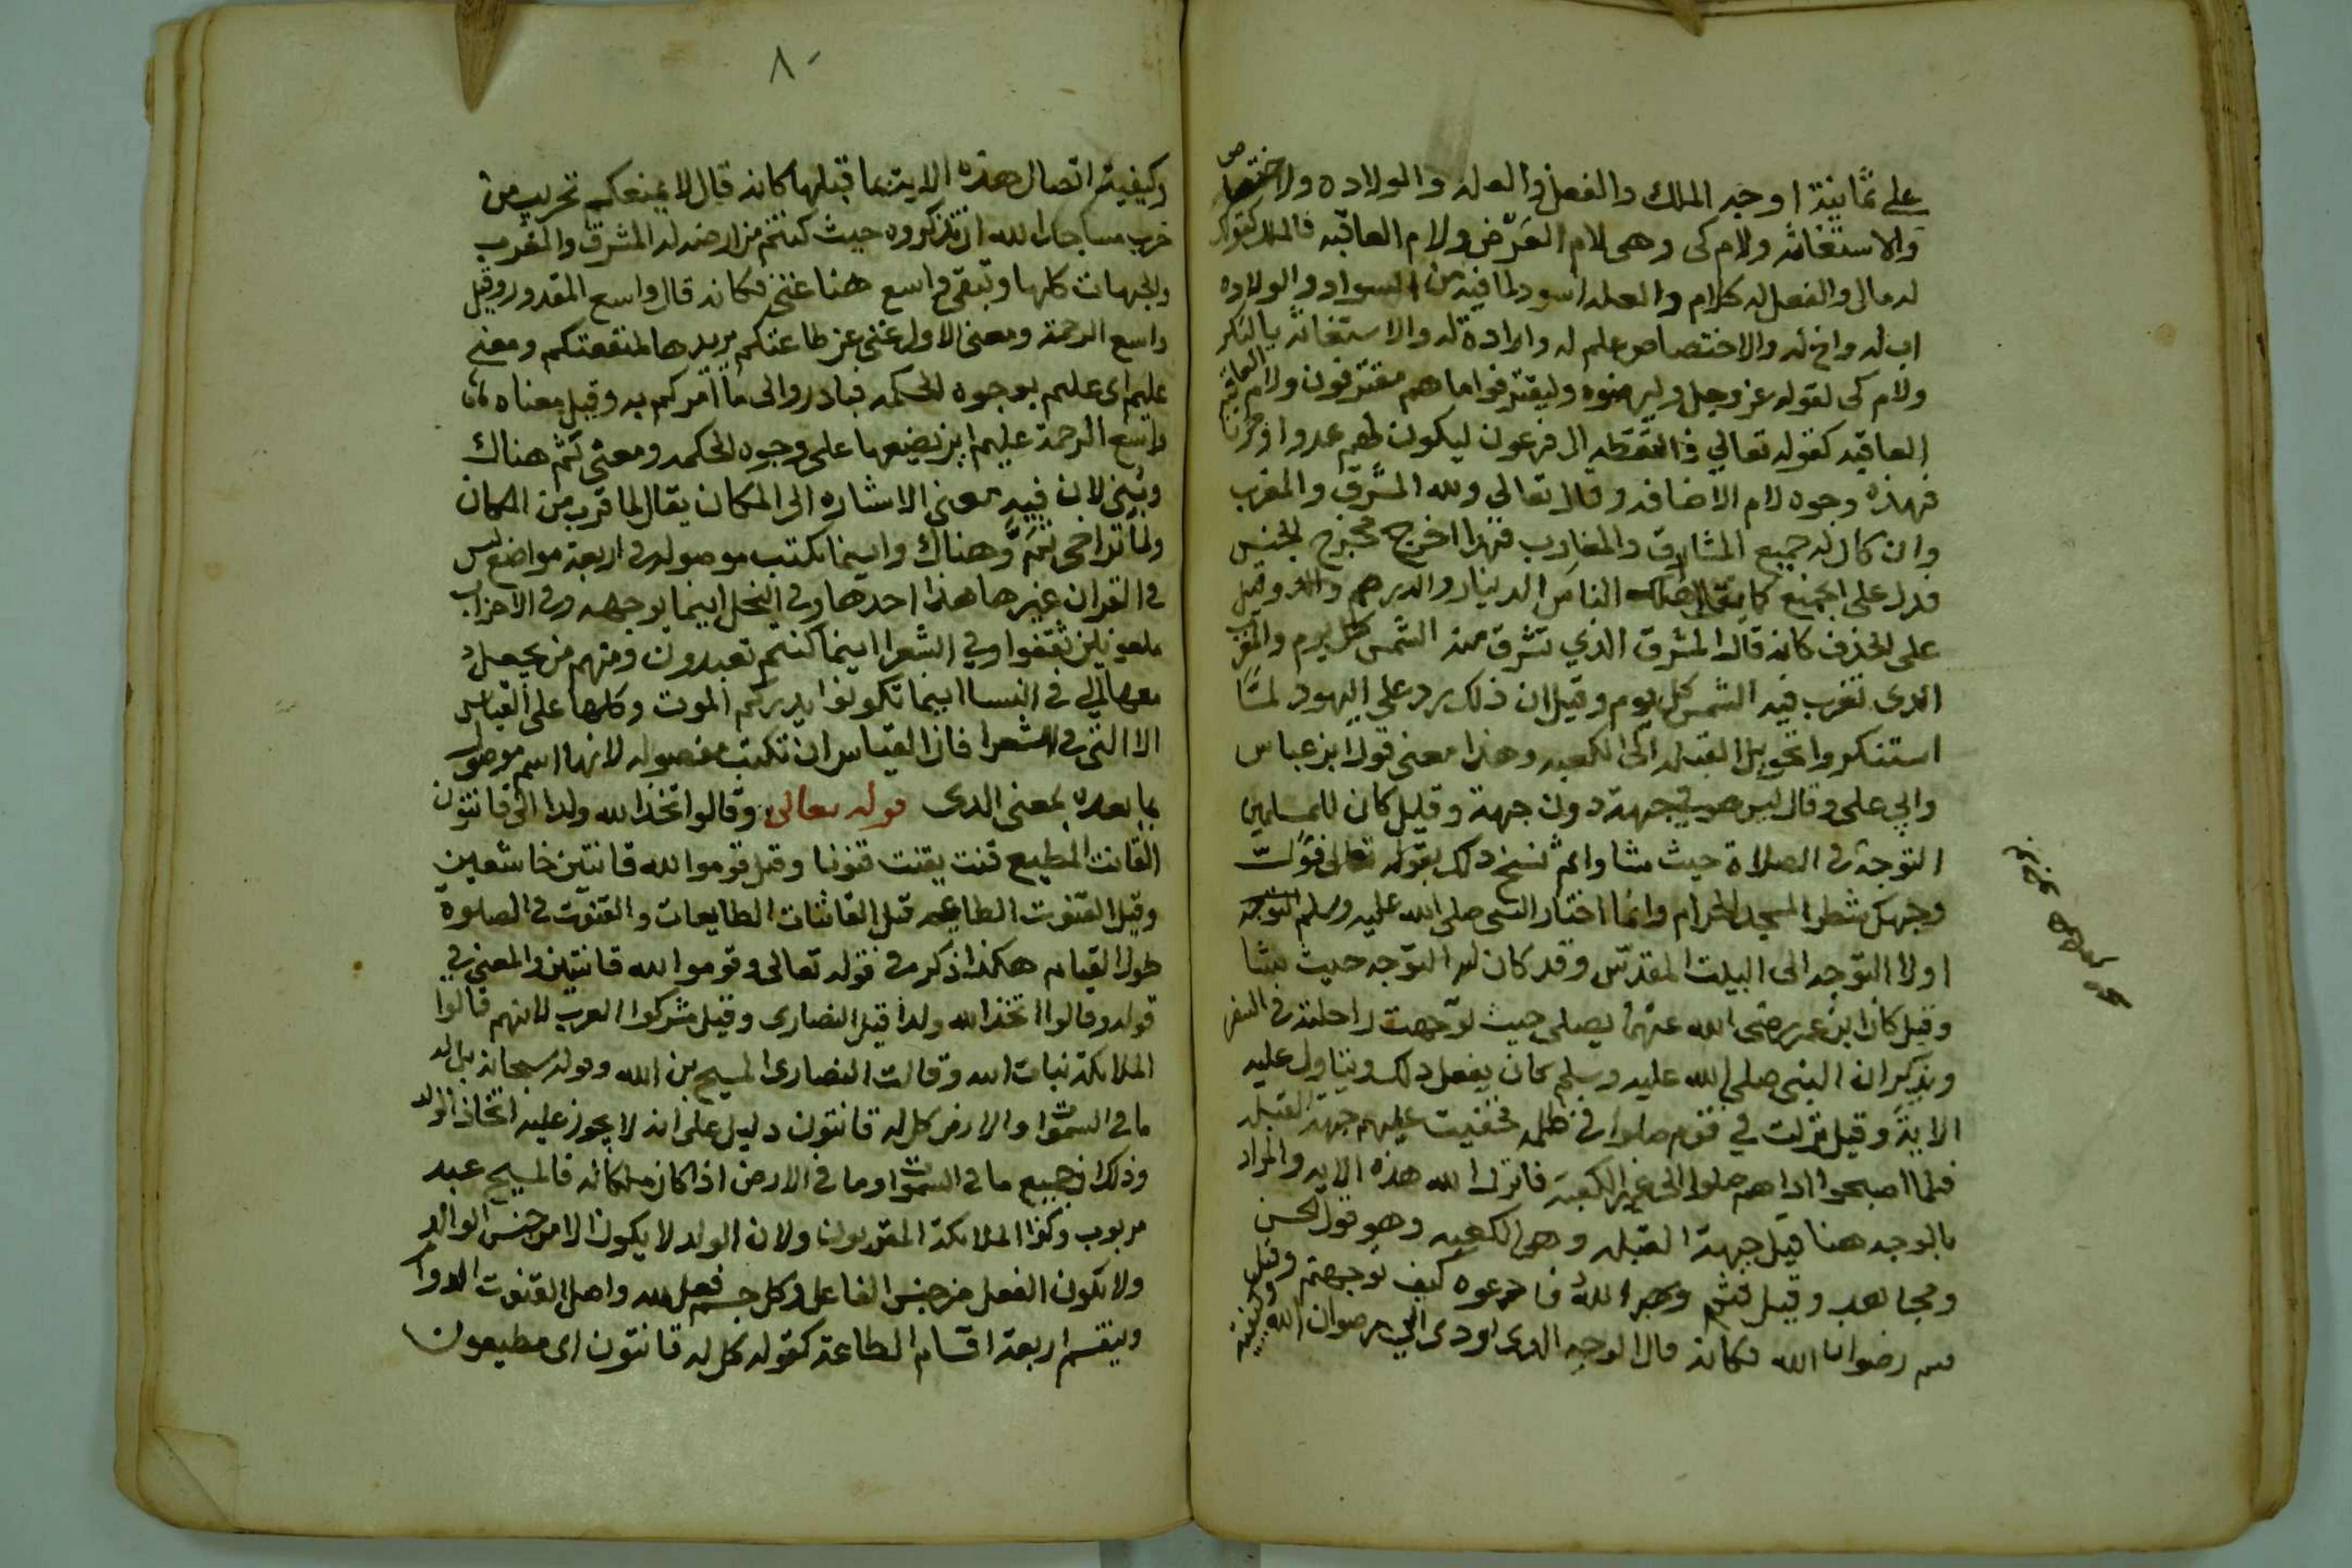 على ثمانية اوجه الملك والفعل والعله والولاده والاختصاص
والاستغاثه ولام كى وهى لام الغَرَض ولام العاقبه فالملك كقولك
له مال والفعل له كلام والعله اسود لما فيه من السواد والولاده
اب له واخ له والاختصاص علم له وارادة له والاستغاثة يا لبكر
ولام كى لقوله عز وجل وليرضوه وليقترفوا ما هم مقترفون ولام العاقبه
العاقبه كقوله تعالي فالتقطه ال فرعون ليكون لهم عدوا وحزنا
فهذه وجوه لام الاضافه وقال تعالى ولله المشرق والمغرب
وان كان له جميع المشارق والمغارب فهذا اخرج مخرج الجنس
فدل على الجميع كما يقال اهلك الناس الدينار والدرهم وقيل
على الحذف كانه قال المشرق الذي تشرق منه الشمس كل يوم والمغرب
الذى تغرب فيه الشمس كل يوم وقيل ان ذلك رد على اليهود لمّا
استنكروا تحويل القبله الى الكعبه وهذا معنى قول ابن عباس
وابي على وقال ليس هو في جهة دون جهة وقيل كان للمسلمين
التوجه فى الصلاة حيث شاوا ثم نسخ ذلك بقوله تعالى فوّل
وجهك شطر المسجد الحرام وانما اختار النبى صلى الله عليه وسلم التوجه
اولا التوجه الى البيت المقدس وقد كان له التوجه حيث شا
وقيل كان ابن عمر رضى الله عنهما يصلى حيث توجهت راحلته فى السفر
ويذكر ان النبى صلى الله عليه وسلم كان يفعل ذلك ويتاول عليه
الاية وقيل نزلت في قوم صلوا فى ظلمه فخفيت عليهم جهة القبله
فلما اصبحوا اذا هم صلوا الى غير الكعبة فانزل الله هذه الايه والمراد
بالوجه هنا قيل جهة القبله وهى الكعبه وهو قول الحسن
ومجاهد وقيل فثم وجه الله فادعوه كيف توجهتم وقيل
فثم رضوان الله فكانه قال الوجه الذى يودى الى رضوان الله
وكيفية
٨٠
وكيفية اتصال هذه الاية بما قبلها كانه قال لا يمنعكم تخريب من
خرب مساجد الله ان تذكروه حيث كنتم من ارضه لله المشرق والمغرب
والجهات كلها وتبقى واسع هنا غنى فكانه قال واسع المقدور وقيل
واسع الرحمة ومعنى الاول غنى عن طاعتكم يريدها لمنفعتكم ومعنى
عليم اى عليم بوجوه الحكمه فبادروا الى ما امركم به وقيل معناه
واسع الرحمة عليم اين يضعها على وجوه الحكمه ومعنى ثَم هناك
وبُنى لان فيه معنى الاشاره الى المكان يقال لما قرب من المكان
ولما تراخى ثَمَّ وهناك واينما تكتب موصوله فى اربعة مواضع ليس
فى القران غيرها هذا احدها وفى النحل اينما يوجهه وفى الاحزاب
ملعونين ثقفوا وفي الشعرا اينما كنتم تعبدون ومنهم من يجعل
معها التي فى النسا اينما تكونوا يدرككم الموت وكلها على القياس
الا التى فى الشعرا فان القياس ان تكتب مفصوله لانها اسم موصول
بما بعده بمعنى الذى قوله تعالى وقالوا اتخذ الله ولدا الى قانتون
القانت المطيع قنت يقنت قنوتا وقيل قوموا لله قانتين خاشعين
وقيل القنوت الطاعه قيل القانتات الطايعات والقنوت فى الصلوة
طول القيام هكذا ذكر فى قوله تعالى وقوموا لله قانتين والمعنى في
قوله وقالوا اتخذ الله ولدا قيل النصارى وقيل مشركوا العرب لانهم قالوا
الملايكة بنات الله وقالت النصارى المسيح بن الله وقوله سبحانه بل له
ما فى السموات والارض كل له قانتون دليل على انه لا يجوز عليه اتخاذ الولد
وذلك ان جميع ما فى السموات وما فى الارض اذا كان ملكا له فالمسيح عبد
مربوب وكذا الملايكة المقربون ولان الولد لا يكون الا من جنس الوالد
ولا يكون الفعل من جنس الفاعل وكل جسم فعل لله واصل القنوت الدوام
وينقسم اربعة اقسام الطاعة كقوله كل له قانتون اى مطيعون